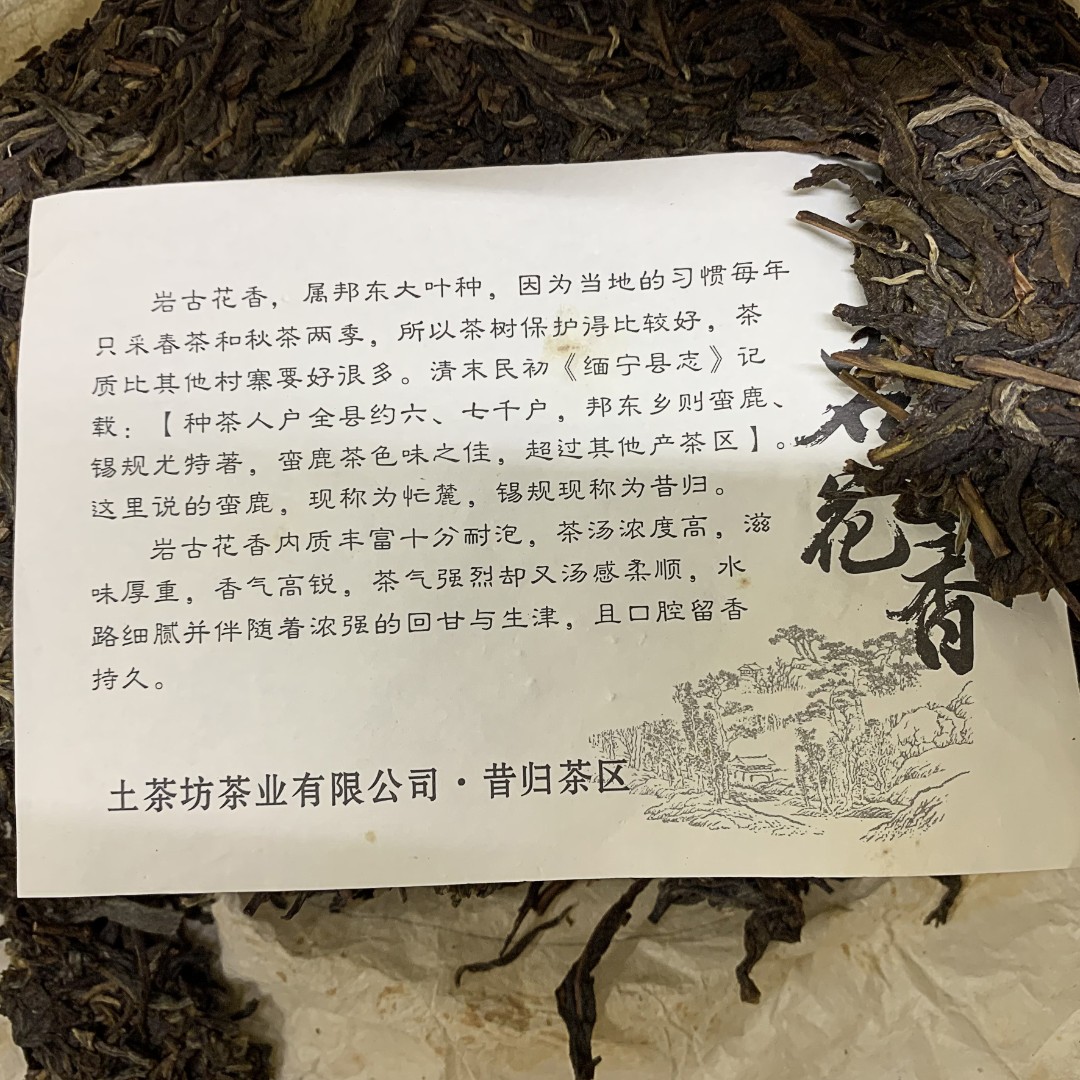 岩古花香，属邦东大叶种，因为当地的习惯每年
只采春茶和秋茶两季，所以茶树保护得比较好，茶
质比其他村寨要好很多。清末民初《缅宁县志》记
载：【种茶人户全县约六、七千户，邦东乡则蛮鹿、
锡规尤特著，蛮鹿茶色味之佳，超过其他产茶区】。
这里说的蛮鹿，现称为忙麓，锡规现称为昔归。
岩古花香内质丰富十分耐泡，茶汤浓度高，滋
味厚重，香气高锐，茶气强烈却又汤感柔顺，水
路细腻并伴随着浓强的回甘与生津，且口腔留香
持久。
土茶坊茶业有限公司·昔归茶区
花
香